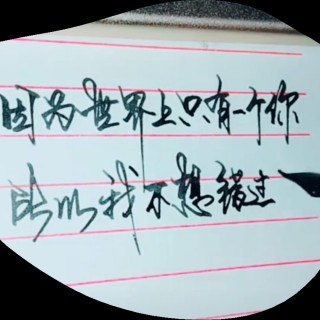 因为世界上只有一个你
所以我不想错过